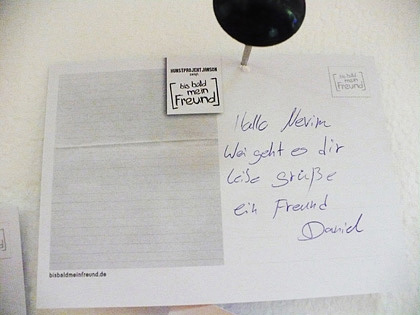 KUNSTPROJEKT JANSON
zeigt
[bis bald
mein
Freund]
[bis bald
mein
Freund]
Hallo Nevim
Wei geht es dir
Liebe Grüße
ein Freund
Daniel
bisbaldmeinfreund.de